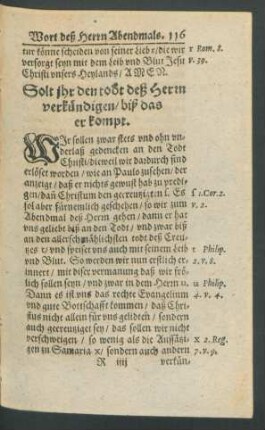 Wort deß Herrn Abendmals. 116
tur könne scheiden von seiner Liebe/ die wir r Rom. 8.
versorgt seyn mit dem Leib vnd Blut Jesu v. 39.
Christi vnsers Heylands/ AMEN.
Solt jhr den todt deß Herrn
verkündigen/ biß das
er kompt.
WJr sollen zwar stets vnd ohn vn-
derlaß gedencken an den Todt
Christi/ dieweil wir dardurch sind
erlöset worden/ wie an Paulo zusehen/ der
anzeigt/ daß er nichts gewust hab zu predi-
gen/ dañ Christum den gecreutzigten ſ. Es ſ 1. Cor. 2.
sol aber fürnemlich geschehen/ so wir zum v. 2.
Abendmal deß Herrn gehen/ dann er hat
vns geliebt biß an den Todt/ vnd zwar biß
an den allerschmählichsten todt deß Creu-
tzes t/ vnd speiset vns auch mit seinem Leib t Philip.
vnd Blut. So werden wir nun erstlich er- 2. v. 8.
innert/ mit dieser vermanung daß wir frö-
lich sollen seyn/ vnd zwar in dem Herrn u. u Philip.
Dann es ist vns das rechte Evangelium 4. v. 4.
vnd gute Bottschafft kommen/ daß Chri-
stus nicht allein für vns gelidten/ sondern
auch gecreutziget sey/ das sollen wir nicht
verschweigen/ so wenig als die Aussätzi- x 2. Reg.
gen zu Samaria x/ sondern auch andern 7. v. 9.
R iiij verkün-